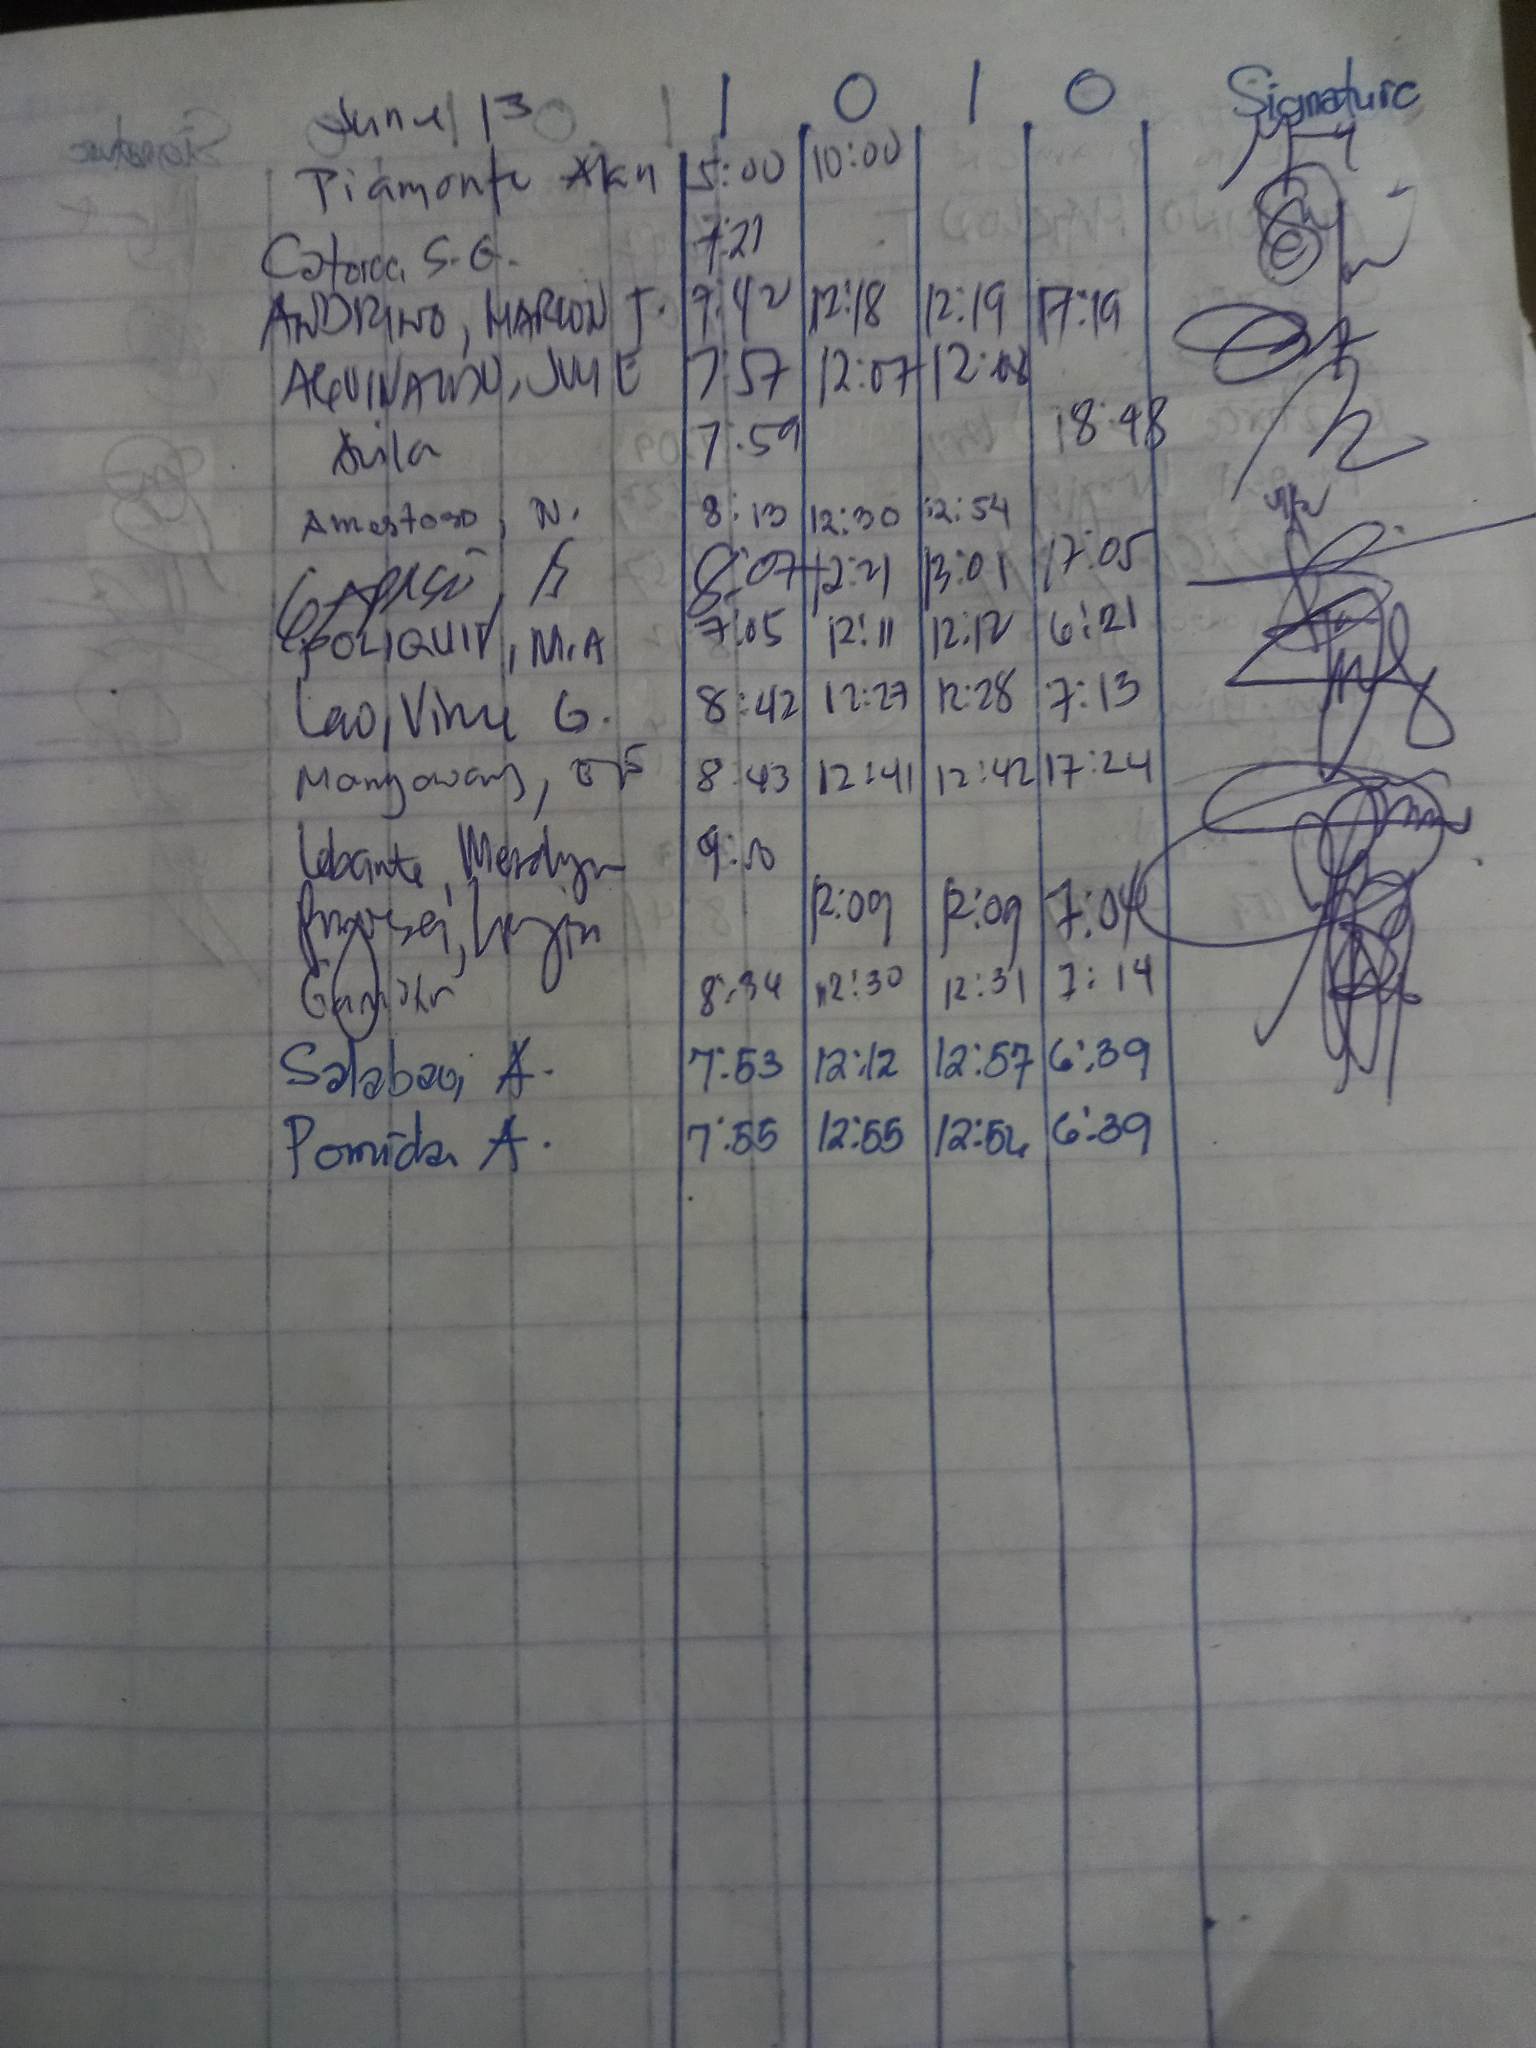 June 13 I O I O Signature
Piamonte Alan 5:00 10:00
Catoico, S.G. 7:21
ANDRINO, MARLON T. 7:42 12:18 12:19 17:19
AGUINALDO, JULIE 7:57 12:07 12:08
Avila 7:59 18:48
Amestoso, N. 8:13 12:30 12:54
8:07 12:21 13:01 17:05
POLIQUIT, M.A 7:05 12:11 12:12 6:21
Lao, Vince G. 8:42 12:27 12:28 7:13
Mangawang, 8:43 12:41 12:42 17:24
Lebante, Merdyn 9:10
12:09 12:09 7:04
8:34 12:30 12:31 7:14
Salabao, A. 7:53 12:12 12:57 6:39
Pomida A. 7:55 12:55 12:56 6:39